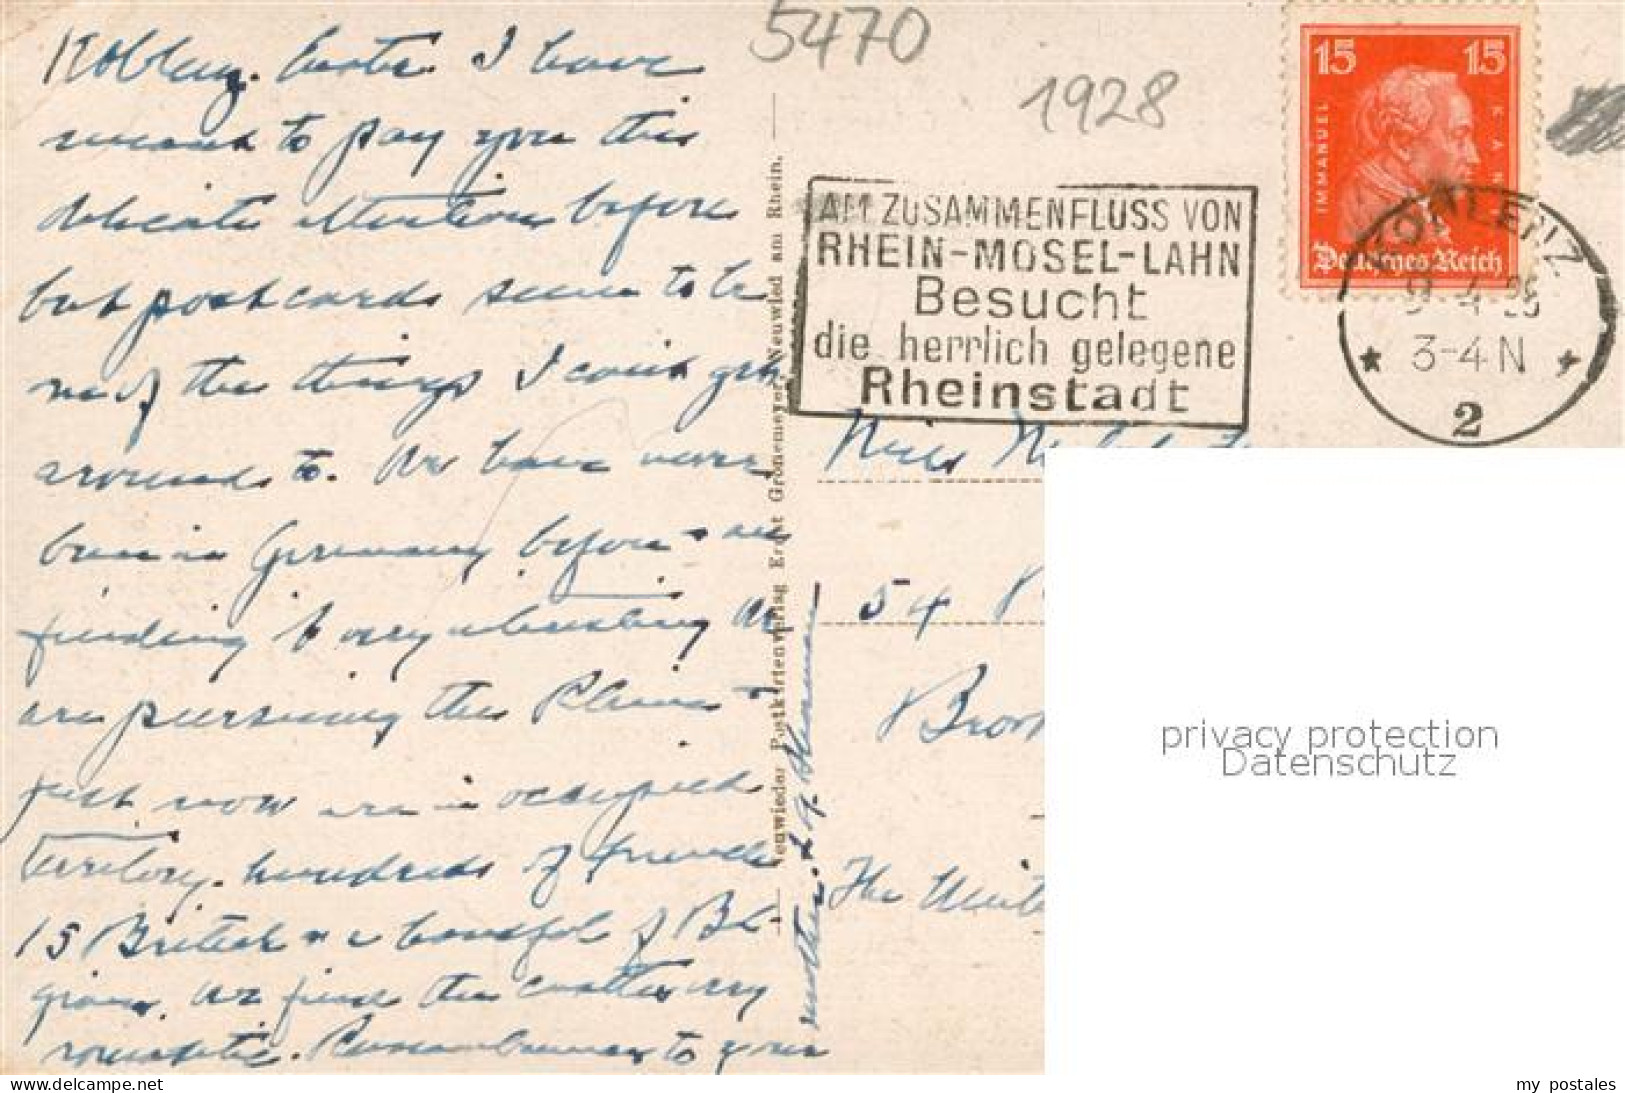 5470
1928
15 15
IMMANUEL KANT
Deutsches Reich
KOBLENZ
9-4-28
3-4 N
2
AM ZUSAMMENFLUSS VON
RHEIN-MOSEL-LAHN
Besucht
die herrlich gelegene
Rheinstadt
Koblenz. Easter. I have
meant to pay you this
delicate attention before
but postcards seem to be
one of the things I can't get
around to. We have never
been in Germany before - are
finding it very interesting We
are pursuing the Rhine -
just now are in occupied
Territory. hundreds of French
15 British & a handful of Bel
gians. We find the castles very
romantic. Remembrances to your
mother. L. G. Sherman
Neuwieder Postkartenverlag Ernst Gromemeyer, Neuwied am Rhein.
Miss
54
The Unite
privacy protection
Datenschutz
https://www.delcampe.net
my postales